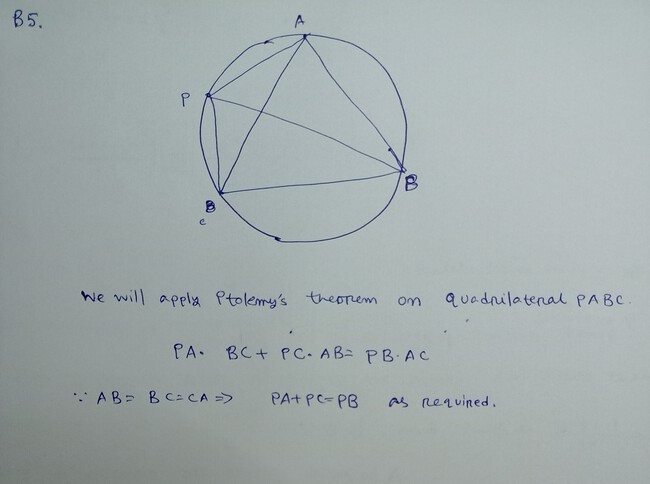 B5.
A
P
B
B
c
We will apply Ptolemy's theorem on quadrilateral PABC.
PA. BC + PC. AB = PB. AC
∵ AB = BC = CA => PA+PC=PB as required.